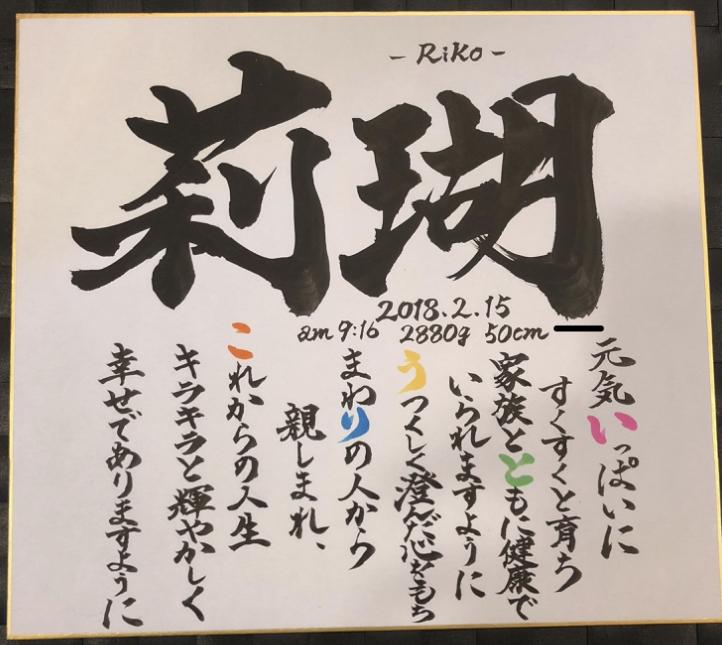 - Riko -
莉瑚
2018.2.15
am 9:16 2880g 50cm
元気いっぱいに
すくすくと育ち
家族とともに健康で
いられますように
うつくしく澄んだ心をもち
まわりの人から
親しまれ、
これからの人生
キラキラと輝やかしく
幸せでありますように